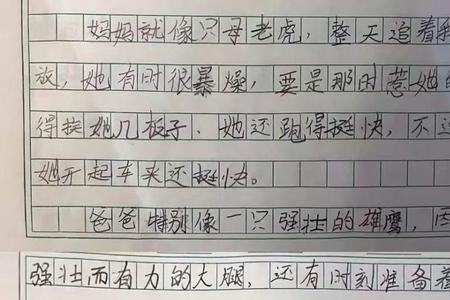 妈妈就像只母老虎，整天追着我
放，她有时很暴燥，要是那时惹她
得挨她几板子．她还跑得挺快，不过
她开起车来还挺快。
爸爸特别像一只强壮的雄鹰，因
强壮而有力的大腿，还有时刻准备着